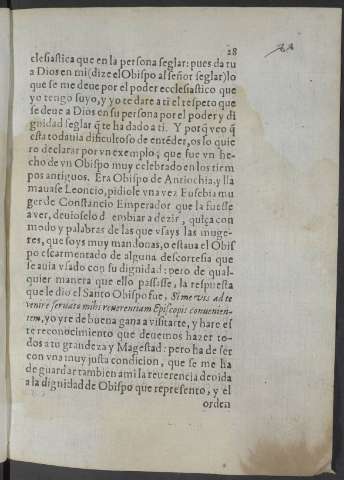 28
clesiastica que en la persona seglar: pues da tu
a Dios en mi (dize el Obispo al señor seglar) lo
que se me deue por el poder ecclesiastico que
yo tengo suyo, y yo te dare a ti el respeto que
se deue a Dios en su persona por el poder y di
gnidad seglar q̃ te ha dado a ti. Y porq̃ veo q̃
esta todauia dificultoso de entẽder, os lo quie
ro declarar por vn exemplo; que fue vn he-
cho de vn Obispo muy celebrado en los tiem
pos antiguos. Era Obispo de Antiochia, y lla
mauase Leoncio, pidiole vna vez Eusebia mu
ger de Constancio Emperador que la fuesse
a ver, deuioselo d embiar a dezir, quiça con
modo y palabras de las que vsays las muge-
res, que soys muy mandonas, o estaua el Obis
po escarmentado de alguna descortesia que
se auia vsado con su dignidad: pero de qual-
quier manera que ello passasse, la respuesta
que le dio el Santo Obispo fue, Si me vis ad te
venire seruato mihi reuerentiam Episcopis conuenien-
tem, yo yre de buena gana a visitarte, y hare es
te reconocimiento que deuemos hazer to-
dos a tu grandeza y Magestad: pero ha de ser
con vna muy justa condicion, que se me ha
de guardar tambien a mi la reuerencia deuida
a la dignidad de Obispo que represento, y el
orden